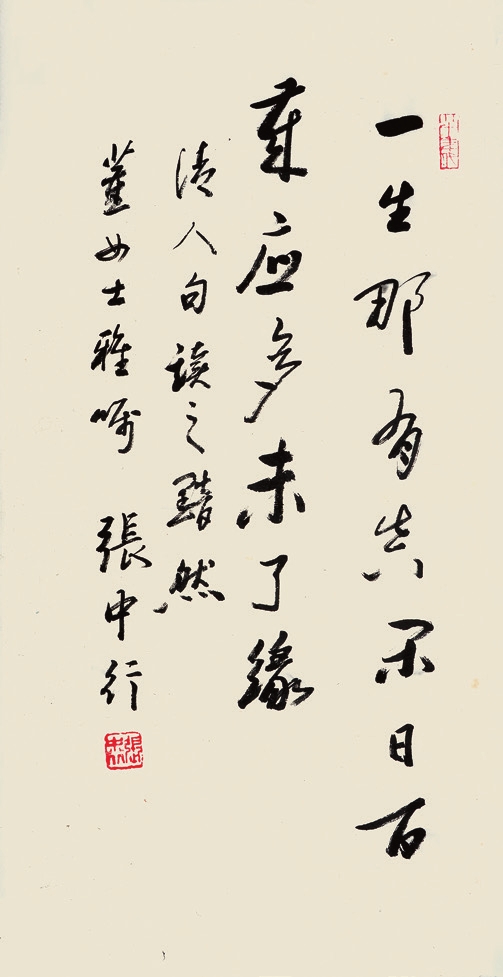 一生那有真闲日百
歲应多未了緣
清人句读之黯然
女士雅嘱 張中行